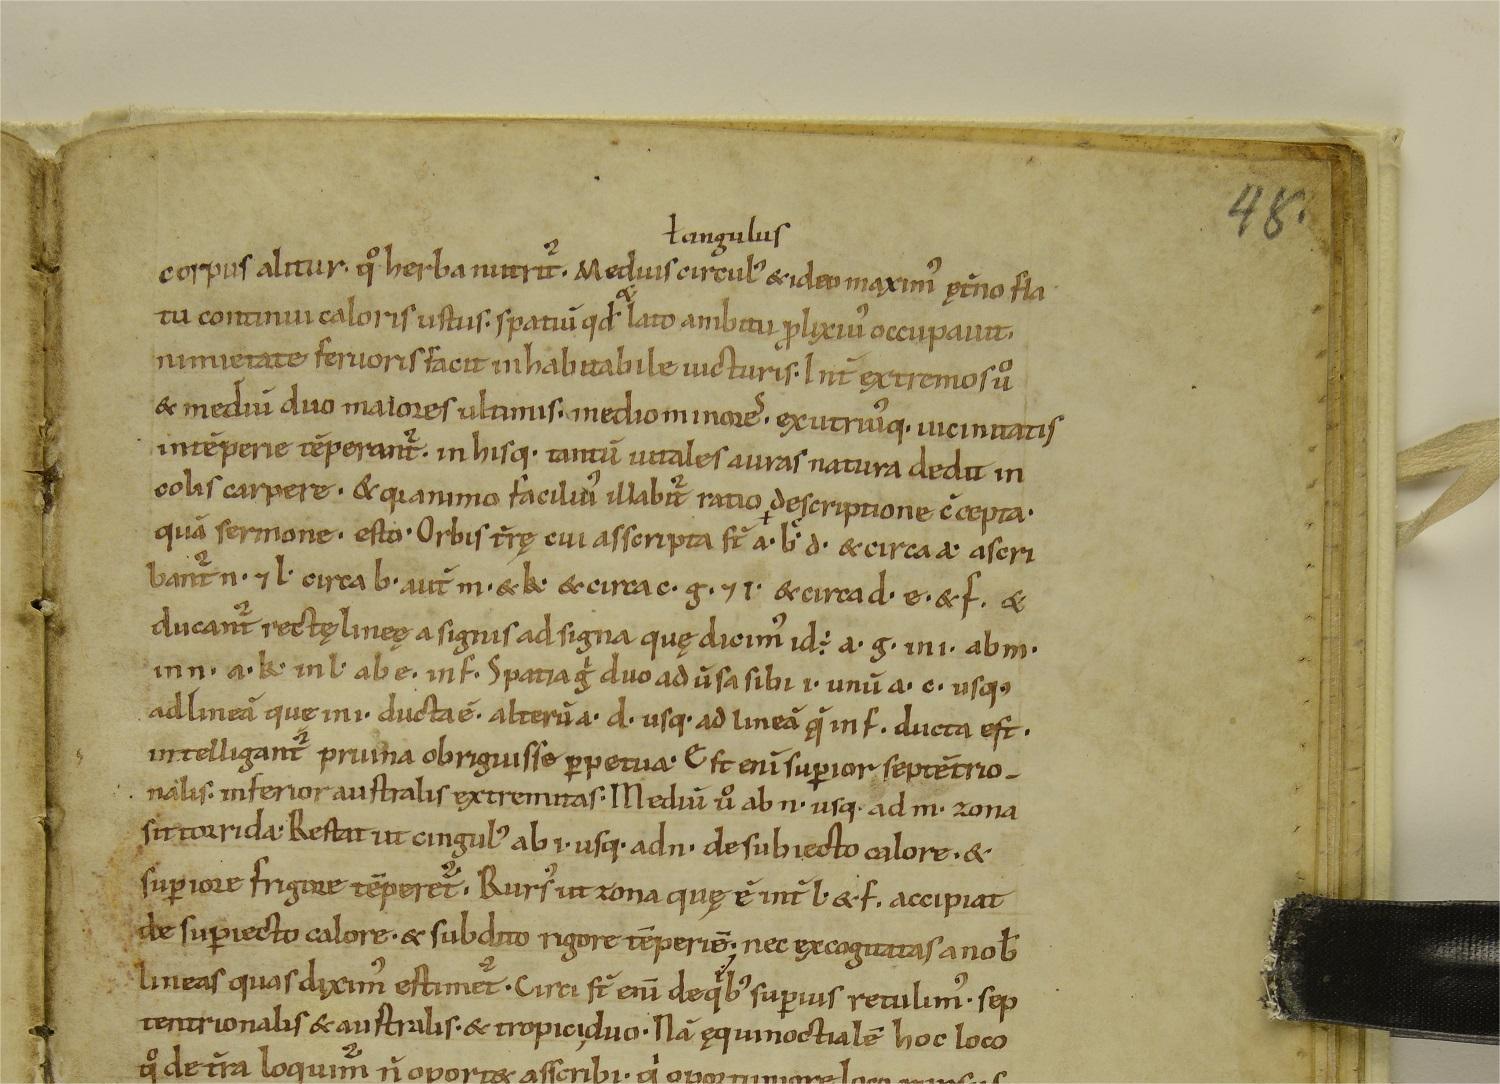 48.
ł angulus
corpus alitur. qͦ herba nutrit᷑. Medius circul᷒ & ideo maxim᷒ ęt̄no fla
tu continui caloris ustus. spatiū qd̄ & lato ambitu ꝓlixiu᷒ occupauit.
nimietate feruoris facit inhabitabile uicturis. Int̄ extremos uͦ
& mediū duo maiores ultimis. medio minores. ex utriu᷒q. uicinitatis
intēperie tēperant᷑. in hisq. tantū uitales auras natura dedit in
colis carpere. & qi animo faciliu᷒ illabit᷑ ratio descriptione c̄cepta.
quā sermone. esto. Orbis t̄rę cui asscripta st̄ a. b. c. d. & circa a. ascri
bant᷑ n. ⁊ l. circa b. aut̄ m. & k. & circa c. g. ⁊ i. & circa d. e. & f. &
ducant᷑ rectę lineę a signis ad signa quę dicim᷒ id. ē. a. g. in i. ab m.
in n. a. k. in l. ab e. in f. Spatia gͥ duo aduersa sibi i. unū a. c. usq.
ad lineā que in i. ducta ē. alterū a. d. usq. ad lineā q̄ in f. ducta est.
intelligant᷑ pruina obriguisse ꝑpetua. Est enī suꝑior septētrio-
nalis. inferior australis extremitas. Mediū uͦ ab n. usq. ad m. zona
sit torrida. Restat ut cingul᷒ ab i. usq. ad n. de subiecto calore. &
suꝑiore frigore tēperet᷑. Rurs᷒ ut zona quę ē int̄ l. & f. accipiat
de suꝑiecto calore. & subdito rigore tēperiē. nec excogitatas a nob̄
lineas quas dixim᷒ estimet᷑. Circi st̄ enī de qͥb᷒ suꝑius retulim᷒. sep
tentrionalis & australis. & tropici duo. Nā ęquinoctialē hoc loco
qͦ de t̄ra loquim᷑ n̄ oport& asscribi. qͥ oportuniore loco rursus